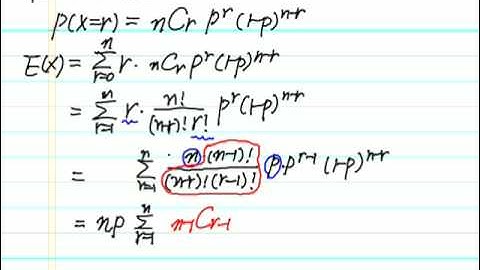 P(X=r) = nCr p^r (1-p)^{n-r}
E(X) = \sum_{r=0}^{n} r · nCr p^r (1-p)^{n-r}
= \sum_{r=1}^{n} r · \frac{n!}{(n-r)! r!} p^r (1-p)^{n-r}
= \sum_{r=1}^{n} \frac{n (n-1)!}{(n-r)! (r-1)!} p · p^{r-1} (1-p)^{n-r}
= np \sum_{r=1}^{n} n-1Cr-1